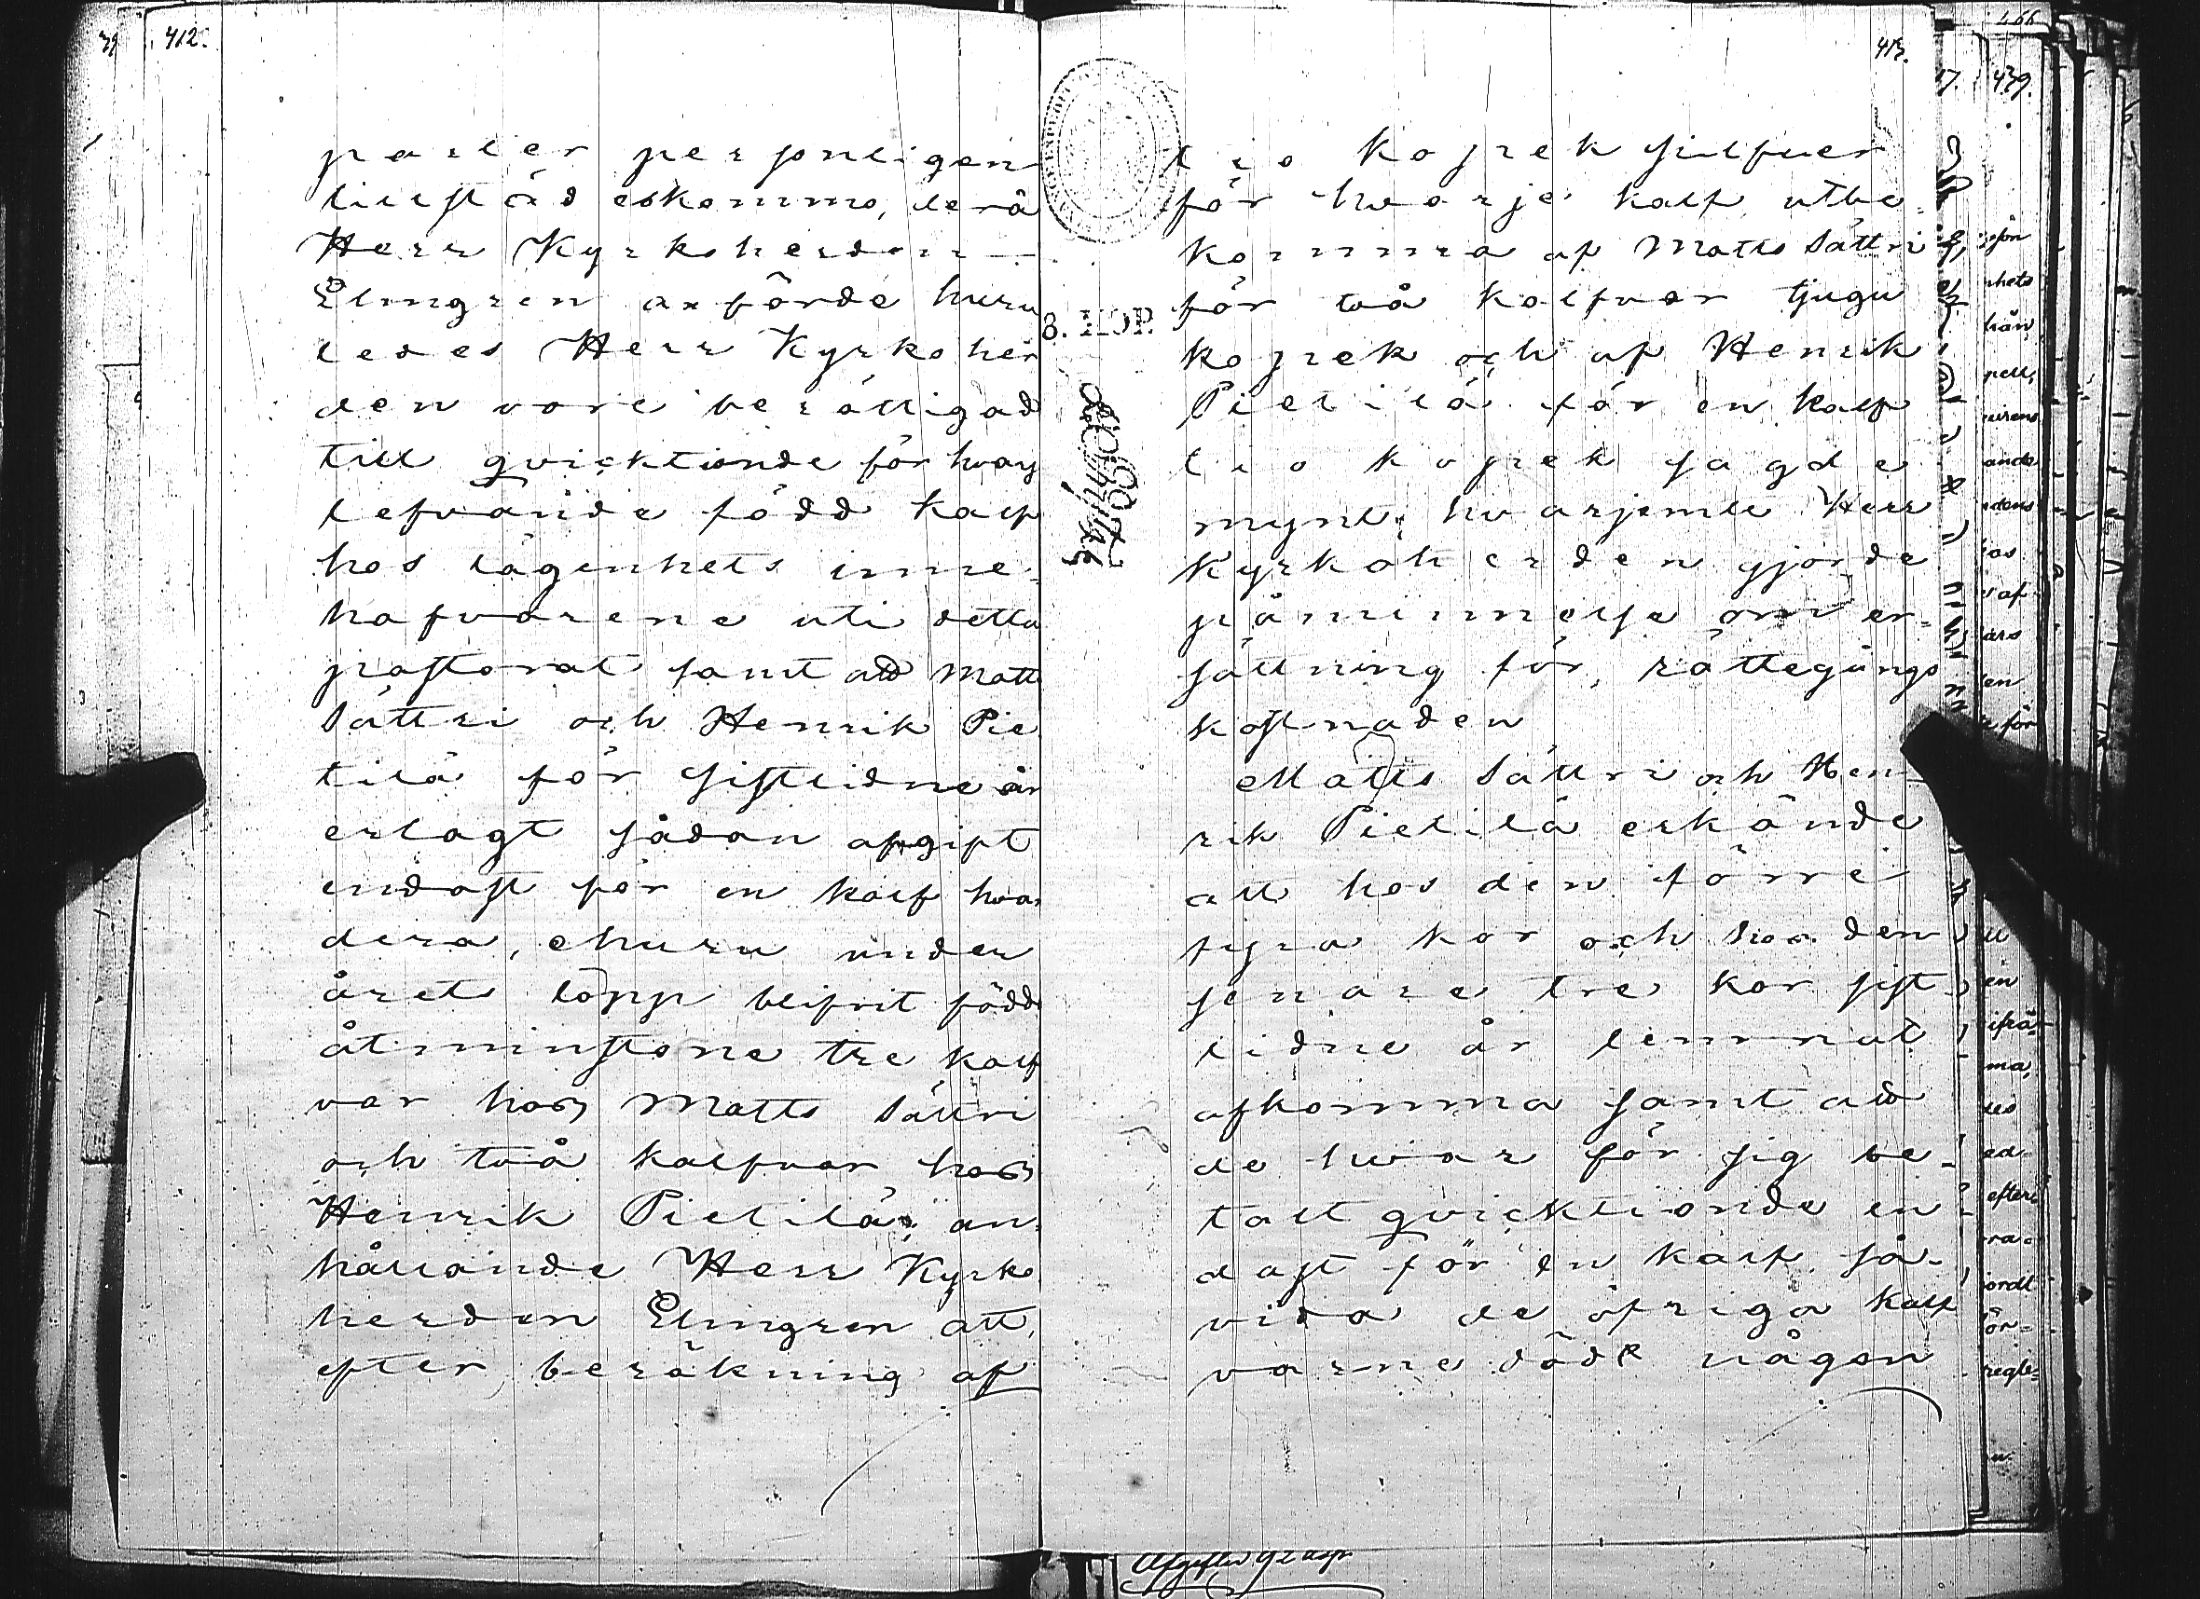 412.
parter personligen
tillstädeskommo, derå
Herr Kyrkoherden
Elmgren anförde huru
ledes Herr Kyrkoher
den vore berättigad
till qvicktionde för hvarj
lefvande född kalf
hos lägenhets inne-
hafvarene uti detta
pastorat samt att Matts
Sättri och Henrik Pie
tilä för sistlidne år
erlagt sådan afgift
endast för en kalf hva
dera, ehuru under
årets lopp blifvit födde
åtminstone tre kalf
var hos Matts Sättri
och två kalfvar hos
Henrik Pietilä; an-
hållande Herr Kyrko
herden Elmgren att,
efter beräkning af
413.
tio kopek silfver
för hvarje kalf, utbe-
komma af Matts Sättri
för två kalfvar tjugu
kopek och af Henrik
Pietilä för en kalf
tio kopek sagde
mynt; hvarjemte Herr
Kyrkoherden gjorde
påminnelse om er-
sättning för rättegångs
kostnaden
Matts Sättri och Hen-
rik Pietilä erkände
att hos den förre
fyra kor och hos den
senare tre kor sist-
lidne år lemnat
afkomma samt att
de hvar för sig be-
talt qvicktionde en
dast för en kalf så-
vida de öfriga kalf
varne dödt någon
8. KOP.
466
439.